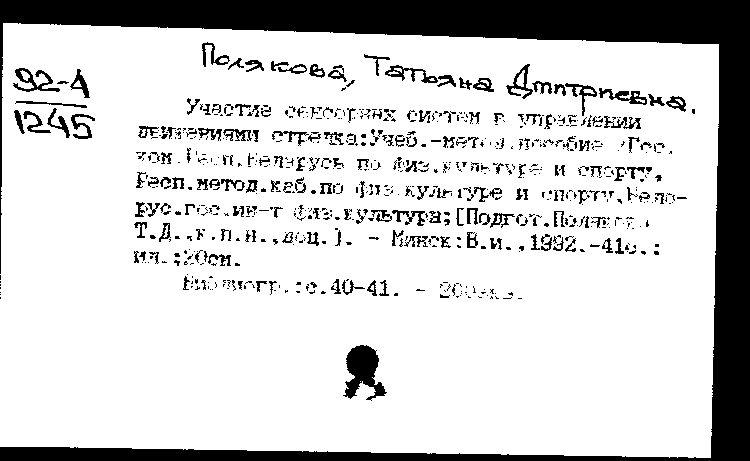 Полякова, Татьяна Дмитриевна.
92-4
1245
Участие сенсорных систем в управлении
движениями стрелка:Учеб.-метод.пособие /Гос.
ком.Респ.Беларусь по физ.культуре и спорту,
Респ.метод.каб.по физ.культуре и спорту,Бело-
рус.гос.ин-т физ.культуры;[Подгот.Полякова
Т.Д.,к.п.н.,доц.]. - Минск:Б.и.,1992.-41с.:
ил.;20см.
Библиогр.:с.40-41. - 200экз.